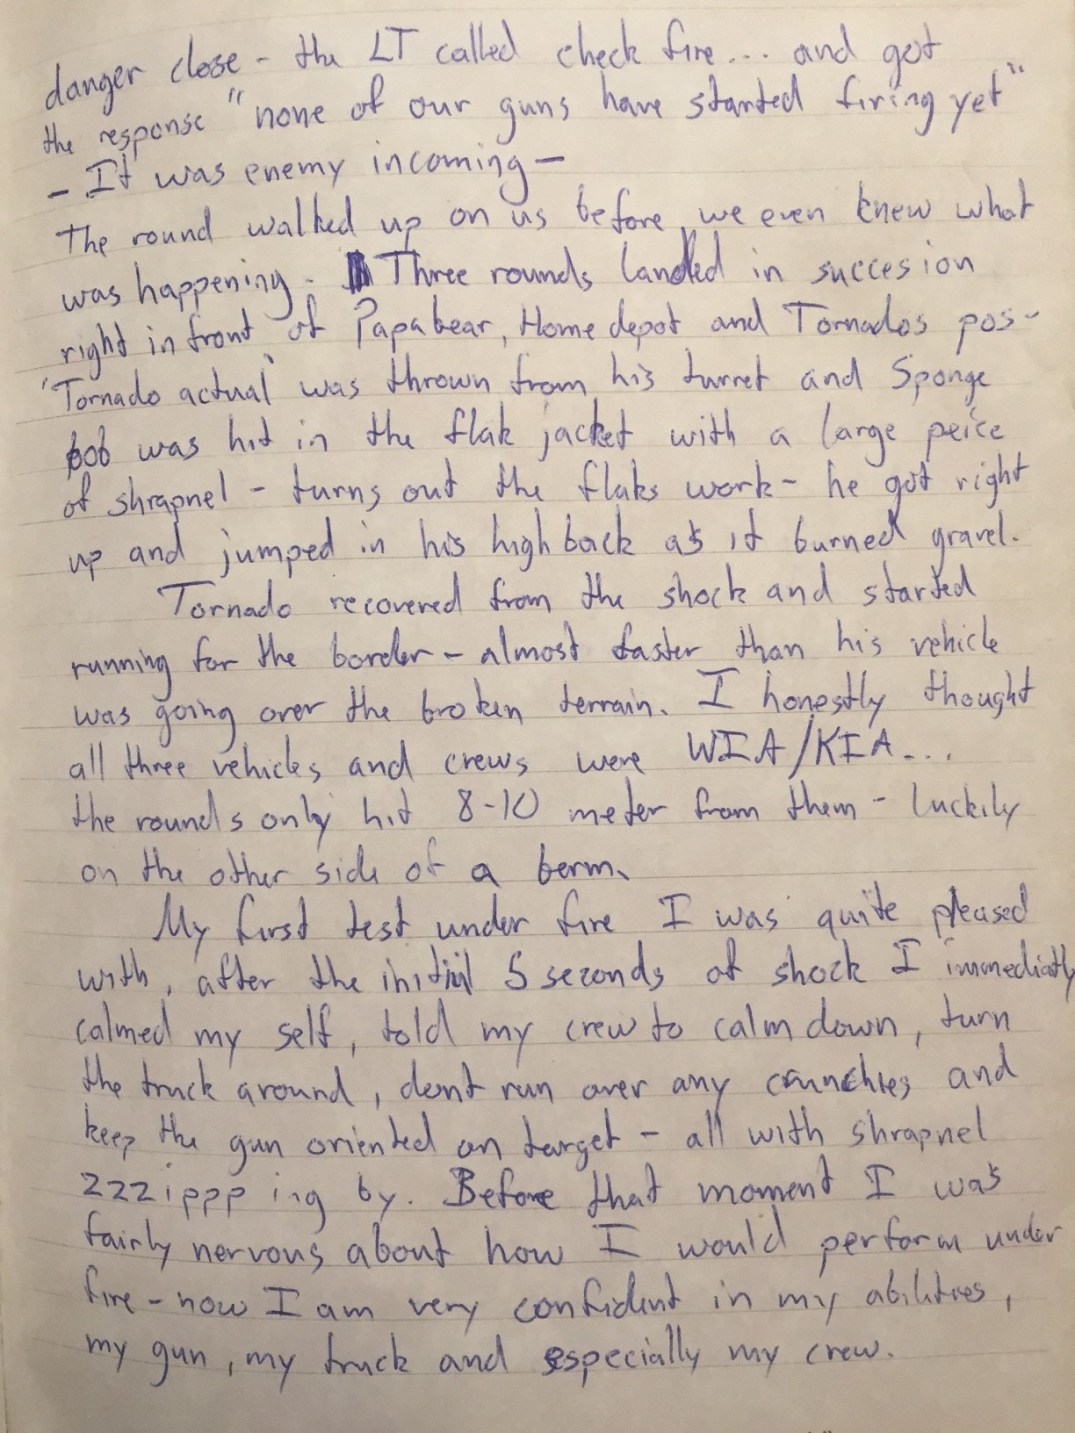 danger close - the LT called check fire... and got
the response "none of our guns have started firing yet"
- It was enemy incoming -
The round walked up on us before we even knew what
was happening. Three rounds landed in succesion
right in front of Papabear, Home depot and Tornados pos-
'Tornado actual' was thrown from his turret and Sponge
bob was hit in the flak jacket with a large peice
of shrapnel - turns out the flaks work - he got right
up and jumped in his high back as it burned gravel.
Tornado recovered from the shock and started
running for the border - almost faster than his vehicle
was going over the broken terrain. I honestly thought
all three vehicles and crews were WIA/KIA...
the rounds only hit 8-10 meter from them - luckily
on the other side of a berm.
My first test under fire I was quite pleased
with, after the initial 5 seconds of shock I immediatly
calmed my self, told my crew to calm down, turn
the truck around, dont run over any crunchies and
keep the gun oriented on target - all with shrapnel
zzzippp ing by. Before that moment I was
fairly nervous about how I would perform under
fire - now I am very confident in my abilities,
my gun, my truck and especially my crew.